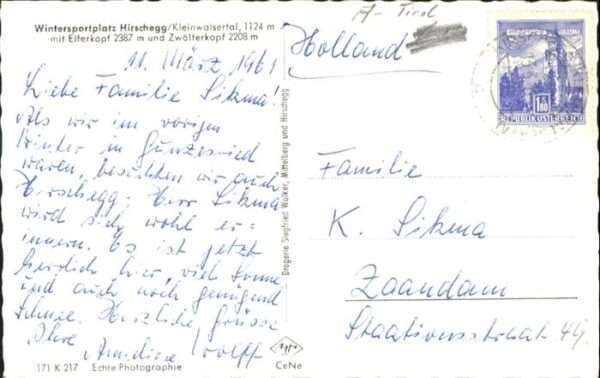 Wintersportplatz Hirschegg/Kleinwalsertal, 1124 m
mit Elferkopf 2387 m und Zwölferkopf 2208 m
11. März 1961
Liebe Familie Sikma!
Als wir im vorigen
Winter in Gunzesried
waren, besuchten wir auch
Hirschegg; Herr Sikma
wird sich wohl er=
innern. Es ist jetzt
herrlich hier, viel Sonne
und auch noch genügend
Schnee. Herzliche Grüsse
Ihre
Wolff
171 K 217 Echte Photographie
Drogerie Siegfried Walker, Mittelberg und Hirschegg
Agfa
CeNe
A - Tirol
Holland
1.80
REPUBLIK ÖSTERREICH
Familie
K. Sikma
Zaandam
Staatiousstraat 49.